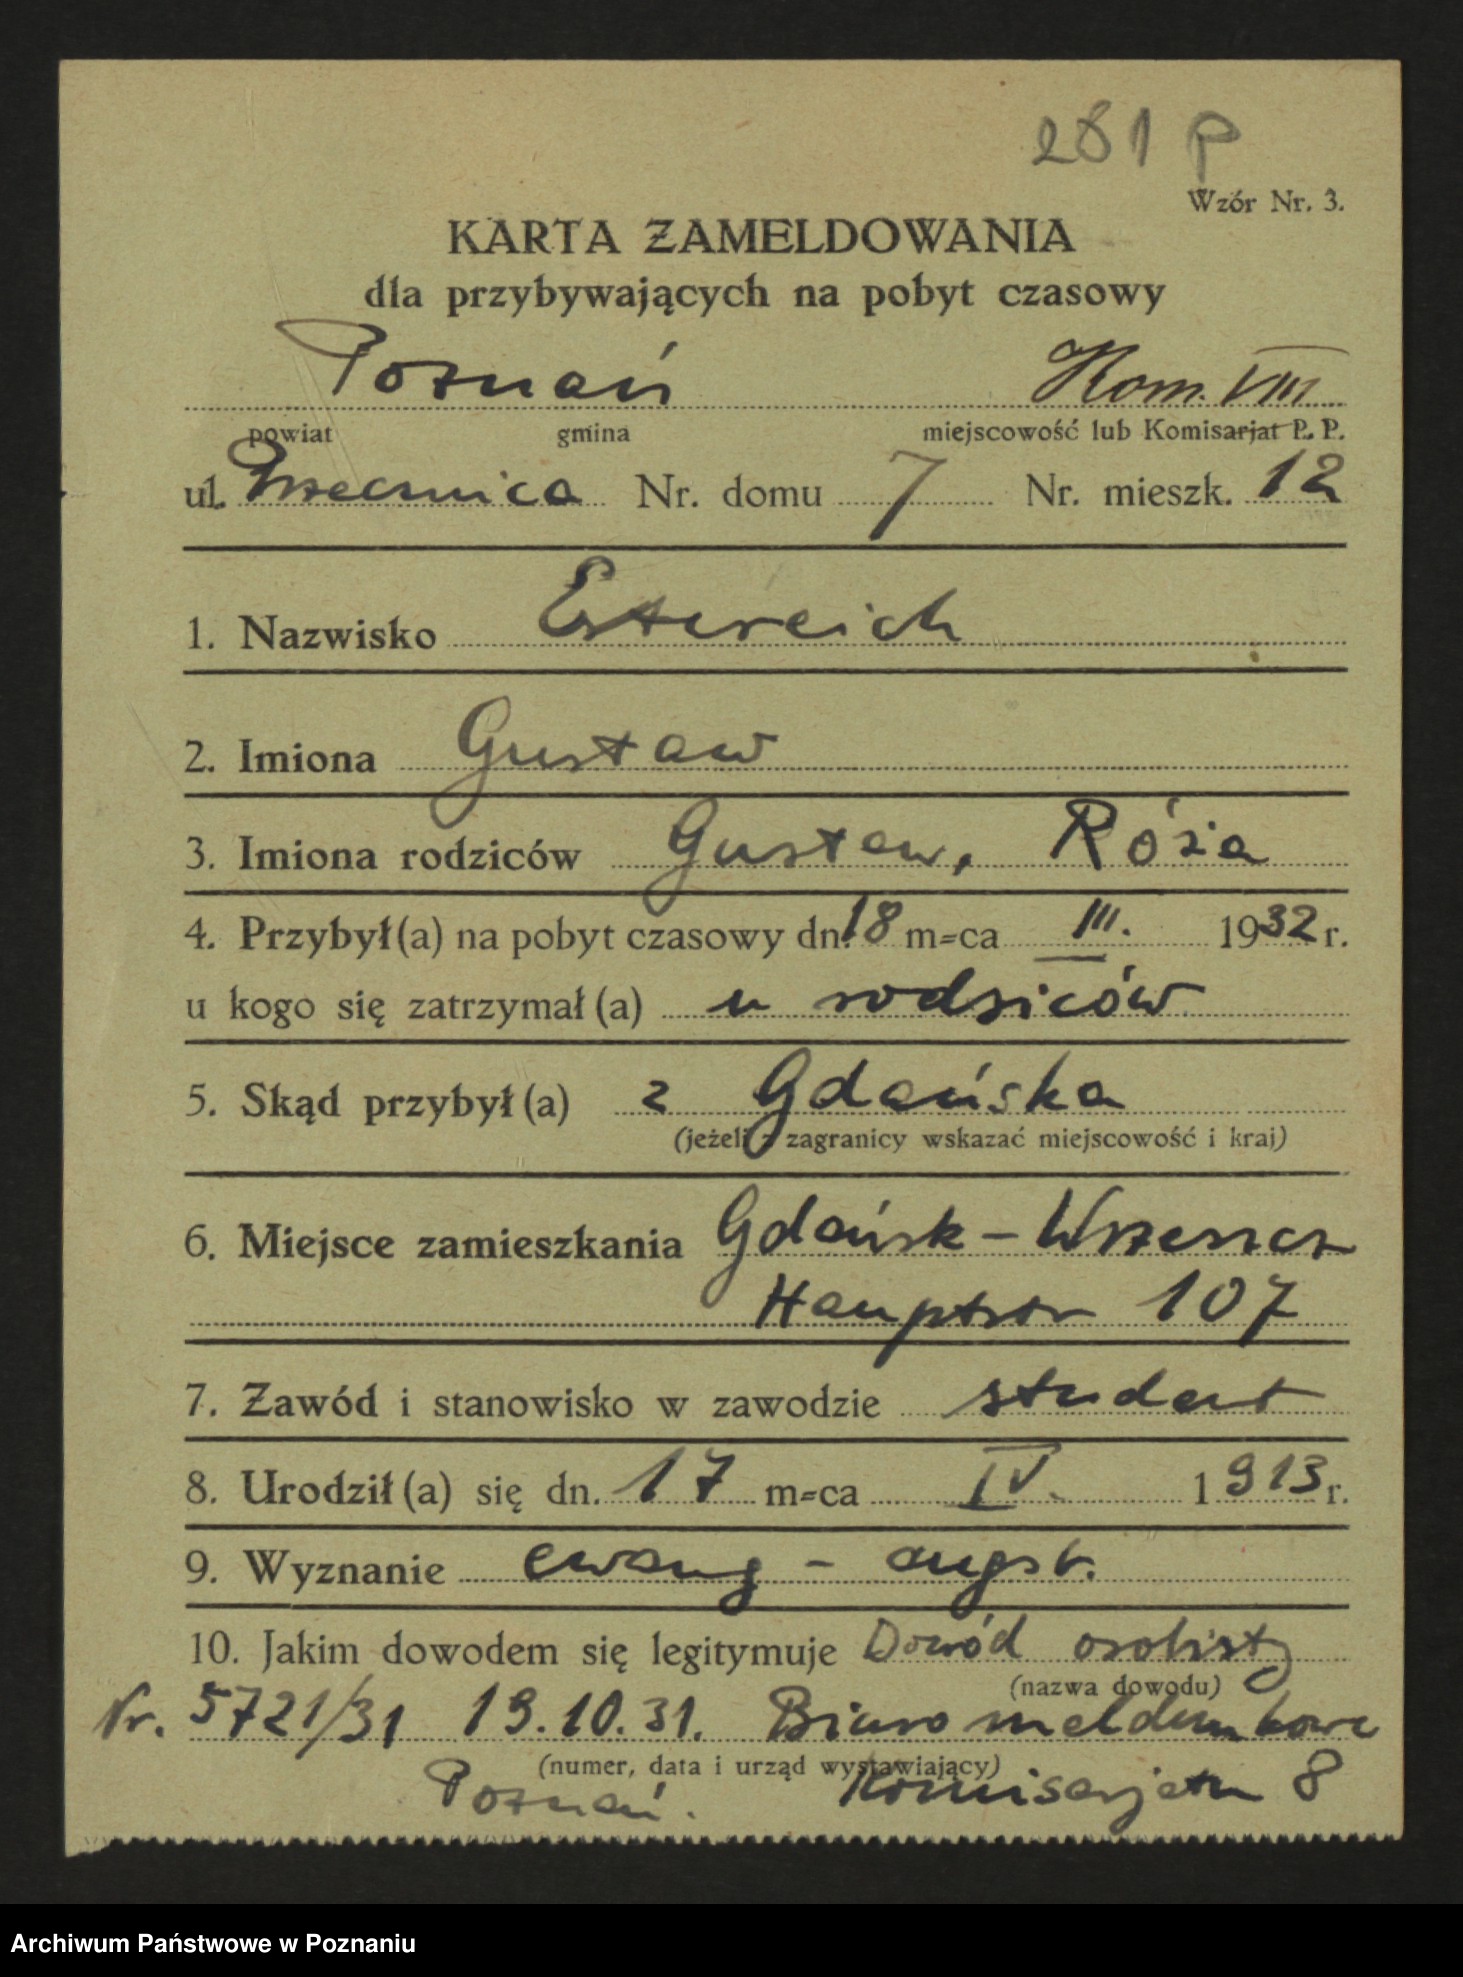 281 P
Wzór Nr. 3.
KARTA ZAMELDOWANIA
dla przybywających na pobyt czasowy
Poznań Kom. VIII
powiat gmina miejscowość lub Komisarjat P. P.
ul. Przecznica Nr. domu 7 Nr. mieszk. 12
1. Nazwisko Estereich
2. Imiona Gustaw
3. Imiona rodziców Gustaw, Róża
4. Przybył(a) na pobyt czasowy dn. 18 m-ca III. 1932 r.
u kogo się zatrzymał(a) u rodziców
5. Skąd przybył(a) z Gdańska
(jeżeli z zagranicy wskazać miejscowość i kraj)
6. Miejsce zamieszkania Gdańsk - Wrzeszcz
Hauptstr 107
7. Zawód i stanowisko w zawodzie student
8. Urodził(a) się dn. 17 m-ca IV. 1913 r.
9. Wyznanie ewang - augsb.
10. Jakim dowodem się legitymuje Dowód osobisty
(nazwa dowodu)
Nr. 5721/31 19.10.31. Biuro meldunkowe
(numer, data i urząd wystawiający)
Poznań. Komisarjatu 8
Archiwum Państwowe w Poznaniu